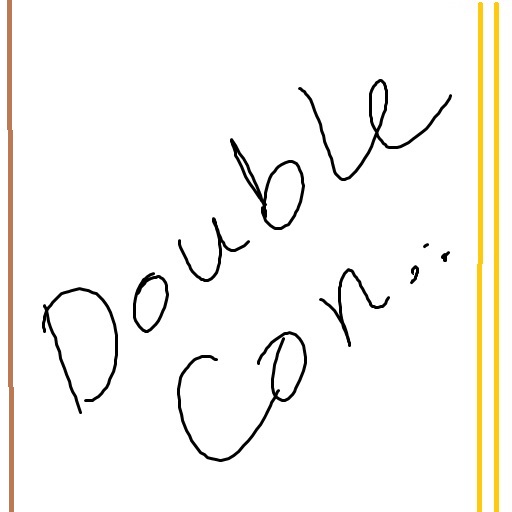 Double
Con..